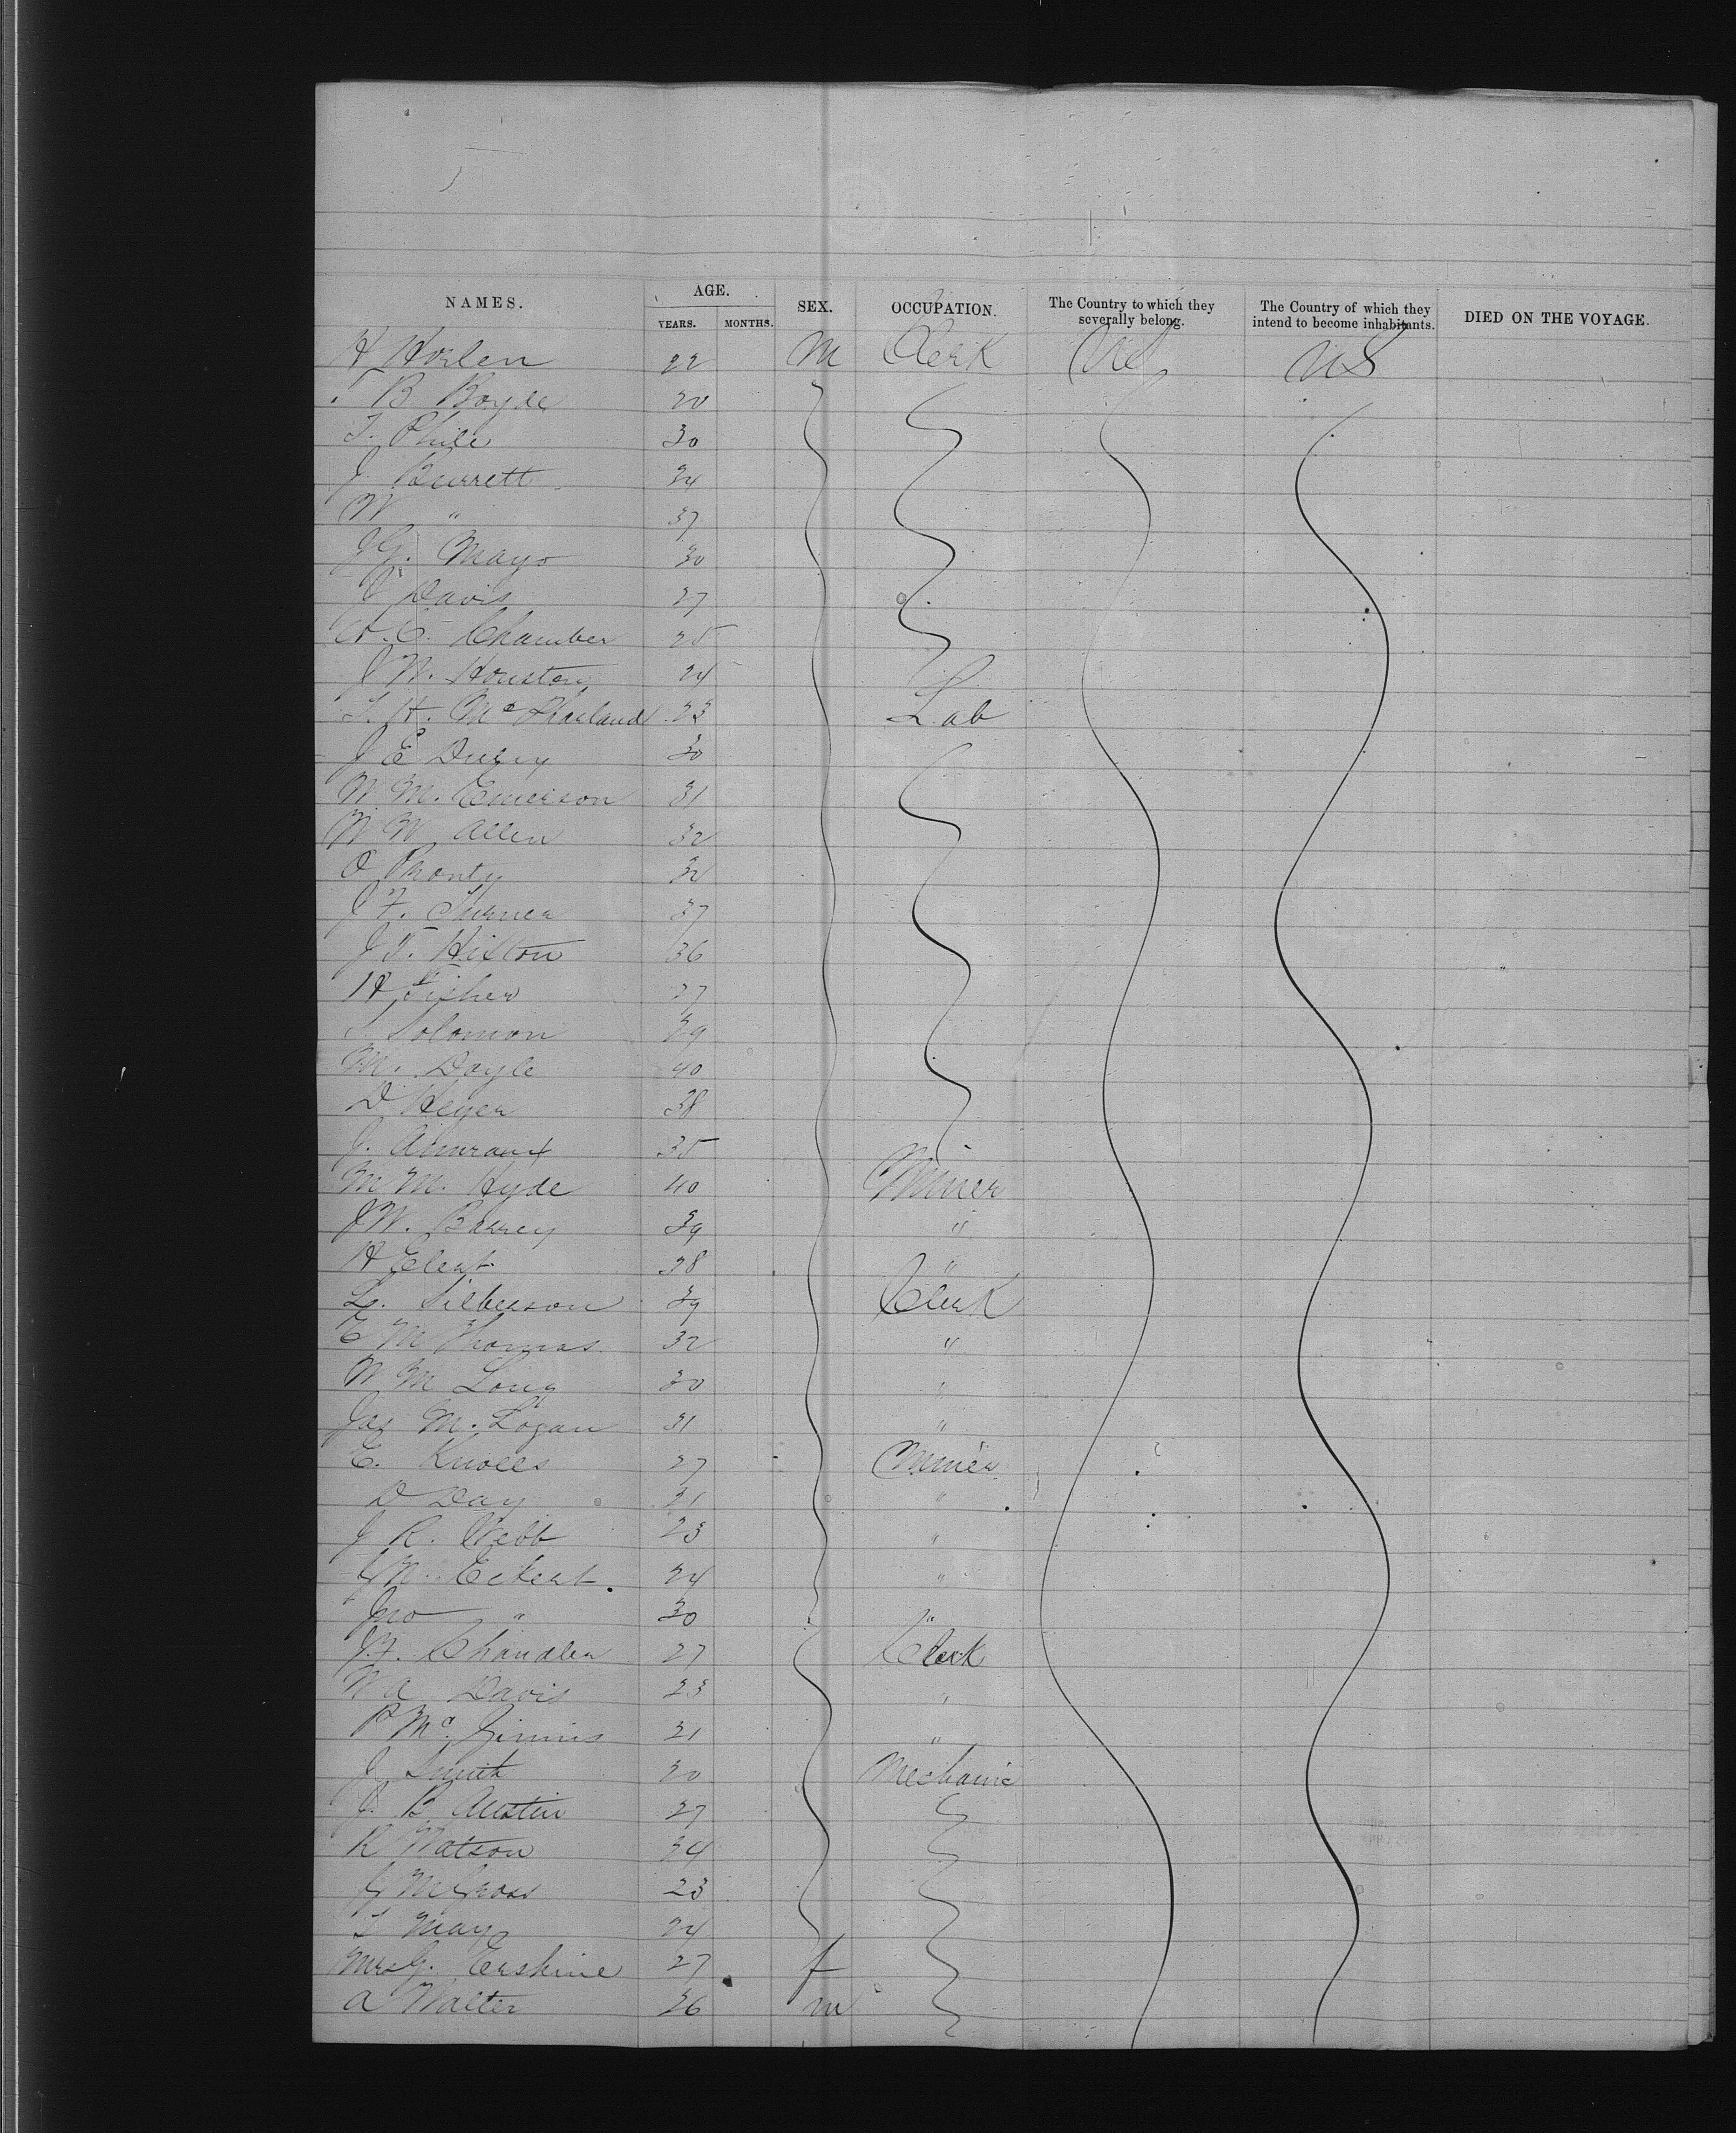 NAMES. AGE. YEARS. MONTHS. SEX. OCCUPATION. The Country to which they severally belong. The Country of which they intend to become inhabitants. DIED ON THE VOYAGE.
H Horlen 22 M Clerk US US
B Boyde 20
T. Phile 30
J Burrett 24
W " 37
J G. Mayo 30
J Davis 27
A. C. Chamber 25
J W. Houston 24
L. H. Mc Pharland 23 Lab
J E 30
W M. Emerson 31
W W Allen 32
O Pronty 32
J F. Turner 37
J T. Hixton 36
H Fisher 27
S. Solomon 39
M. Doyle 40
D Heyer 38
J. 35
M M. Hyde 40 Miner
J W. Barrey 39 "
H Elert 38 "
L. Silberson 39 Clerk
E M Thomas 32 "
W M Long 30 "
Jas M. Logan 31 "
E. Knolls 27 Miner
D Day 21 "
J R. Webb 23 "
G W. Eckert 24 "
Jno " 30 "
J. F. Chandler 27 Clerk
W A Davis 23 "
P Mc Ginnis 21 "
J Smith 20 Mechanic
J. B Austin 27
R Watson 34
J McGross 23
T May 24
Mrs G. Erskine 27 f
A Walter 36 m